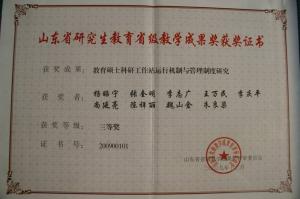 山东省研究生教育省级教学成果奖获奖证书
获奖成果： 教育硕士科研工作站运行机制与管理制度研究
获奖者： 李志广 王万民 李庆平
尚延亮 陈祥丽 魏山金 朱良荣
获奖等级： 三等奖
证书号： 200900101